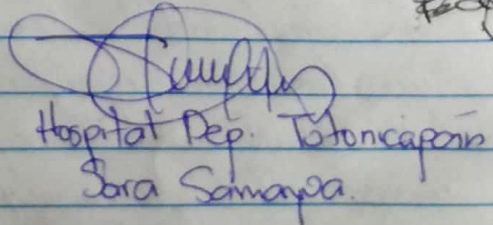 Hospital Dep. Totonicapán
Sara Samayoa.